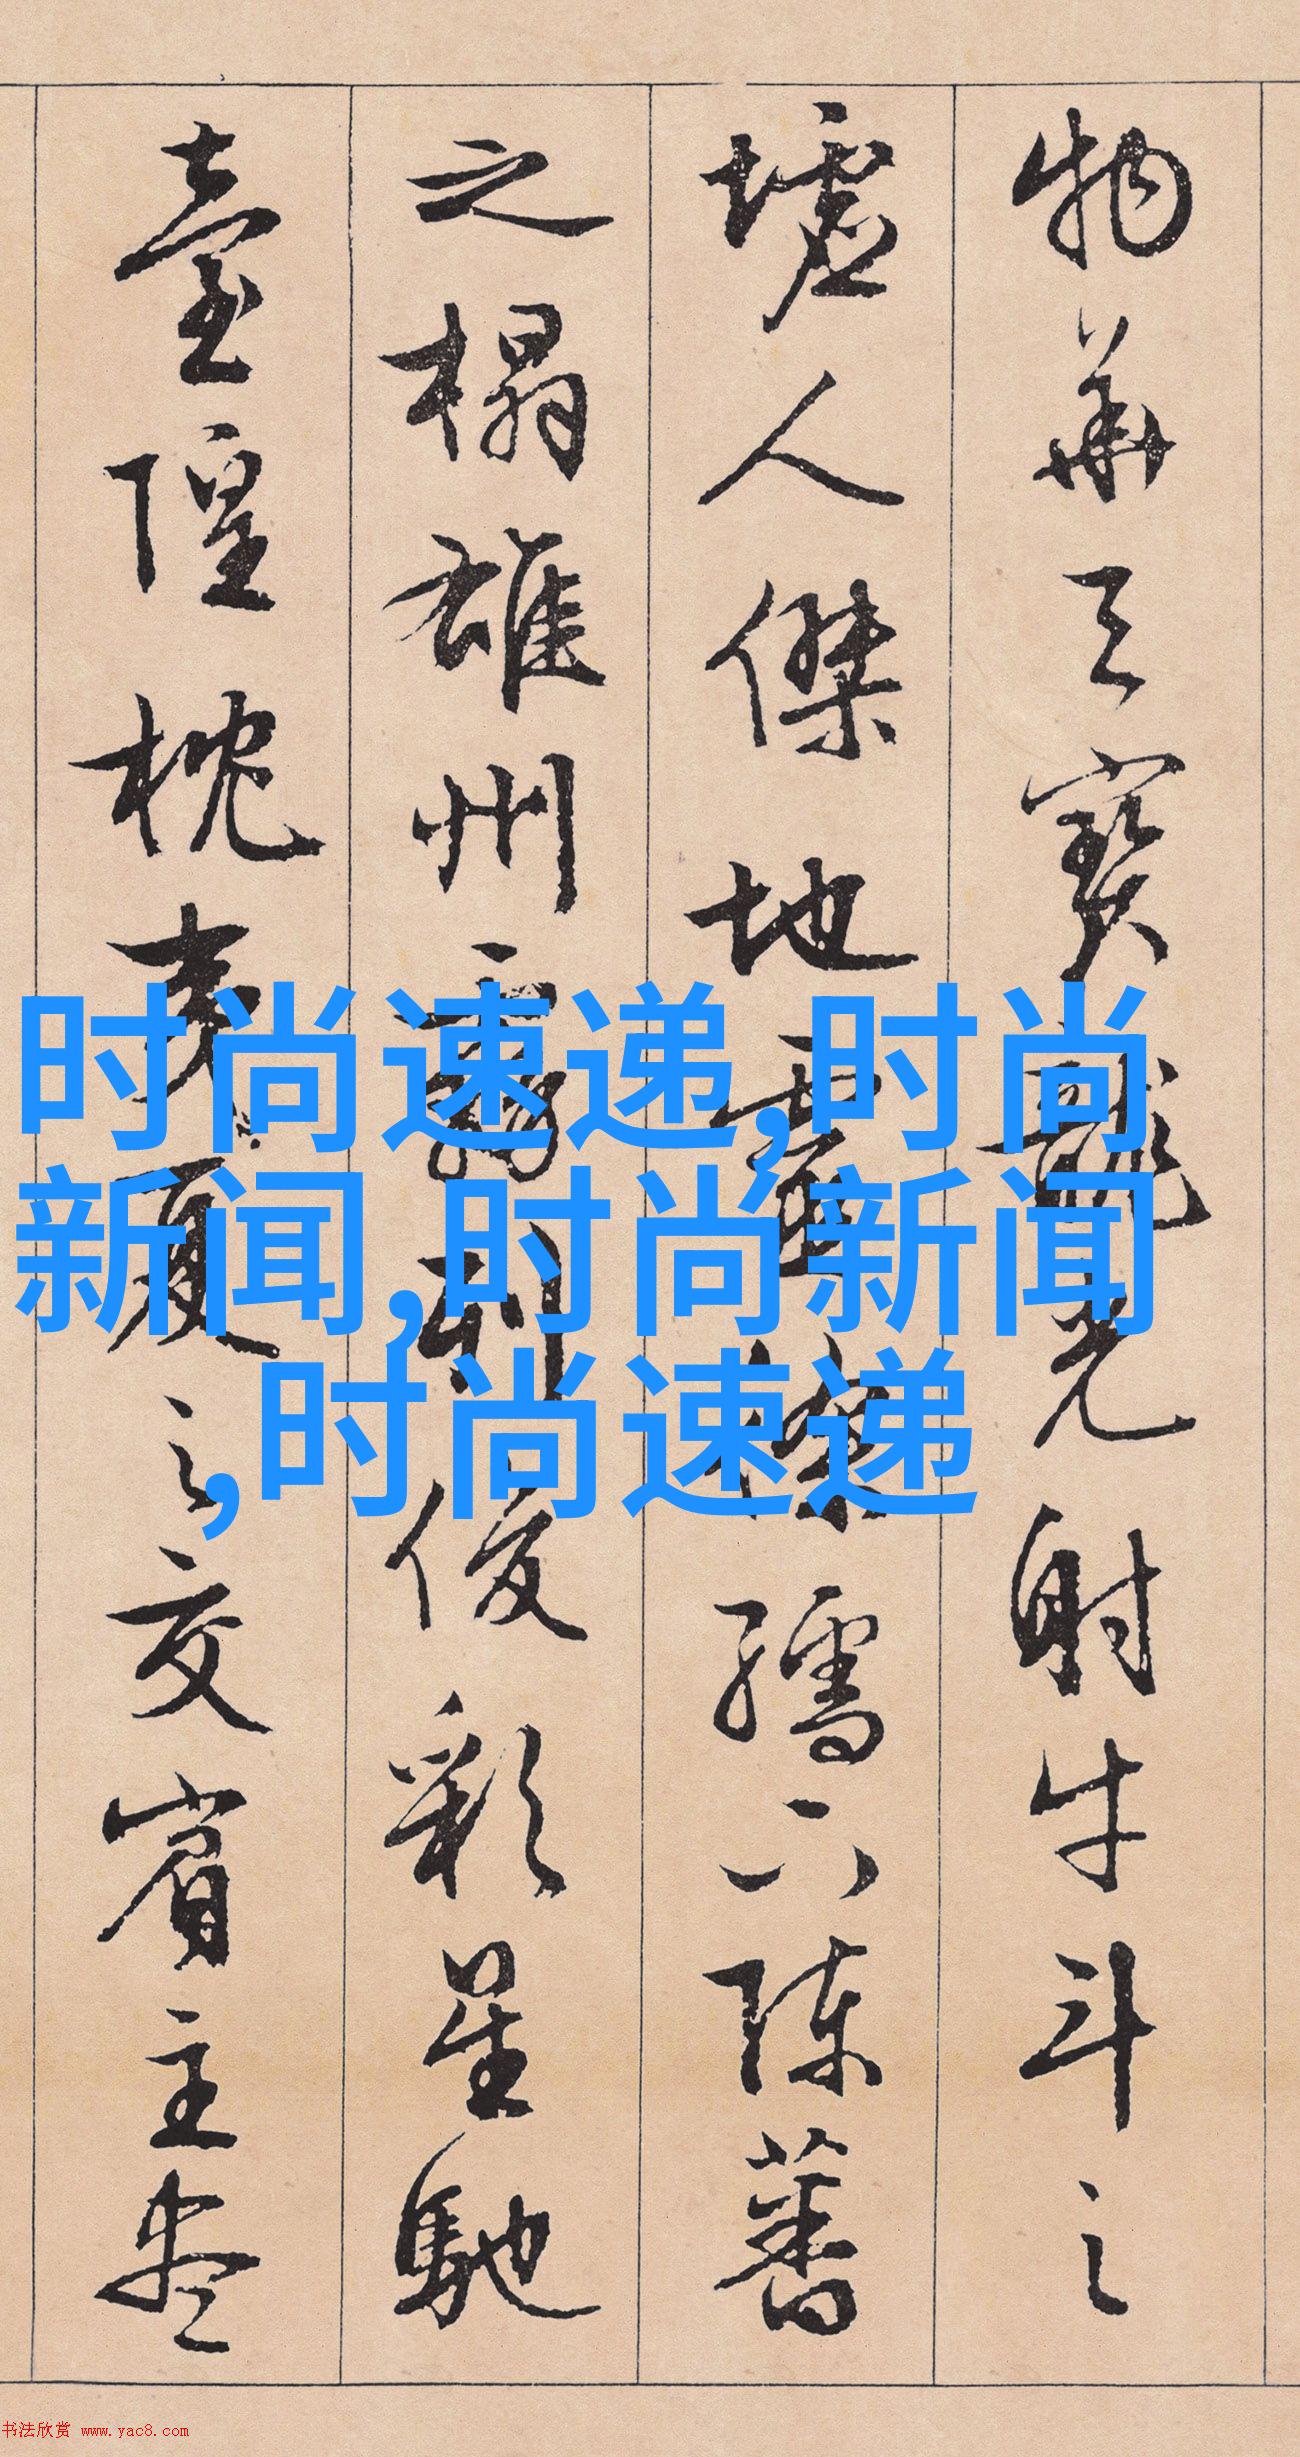 物華天寶龍光射牛斗之
墟人傑地靈徐孺下陳蕃
之榻雄州霧列俊彩星馳
臺隍枕夷夏之交賓主盡
时尚速递,时尚
新闻,时尚新闻
,时尚速递
书法欣赏 www.yac8.com